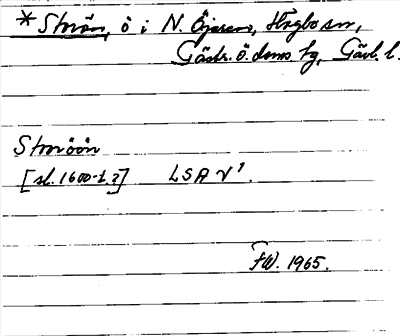 * Storön, ö i N. Öjaren, Högbo sn,
Gästr. ö. doms. hg, Gävl. l.
Storöön
[sl. 1600-t.?] LSA V¹.
FW. 1965.